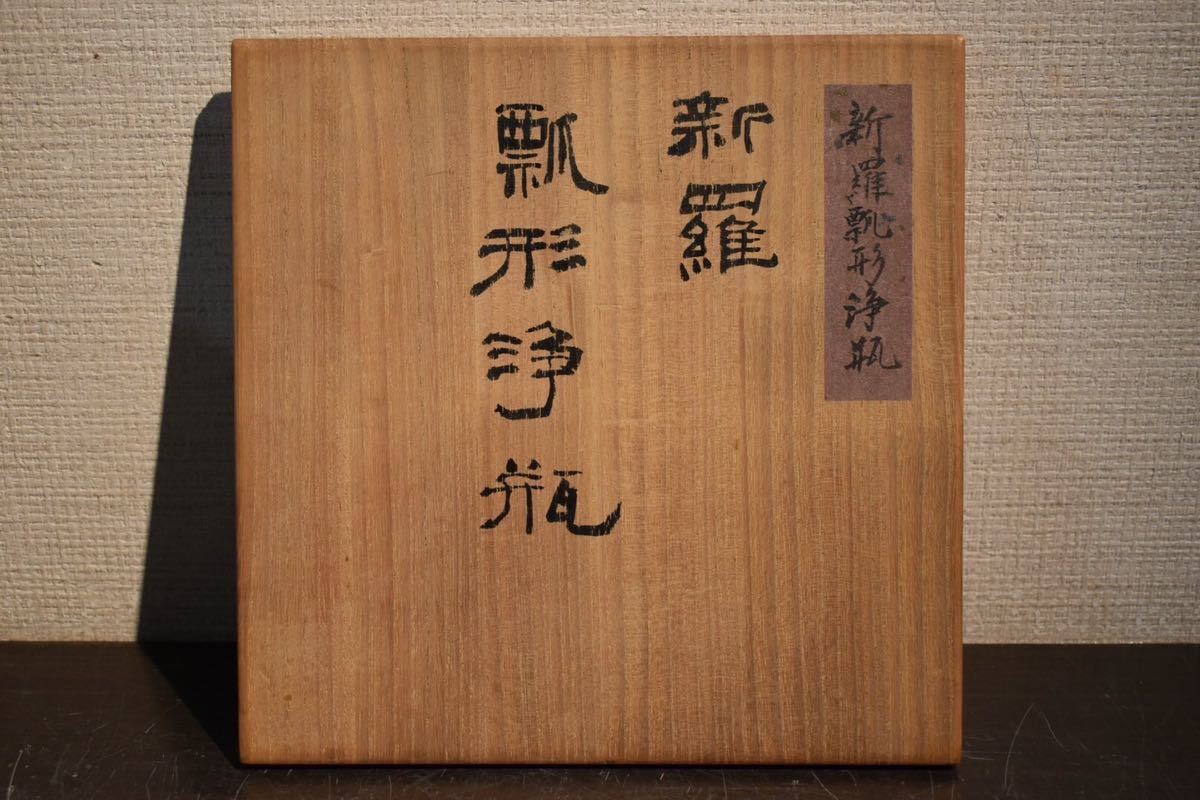 新羅瓢形浄瓶
新羅
瓢形浄瓶